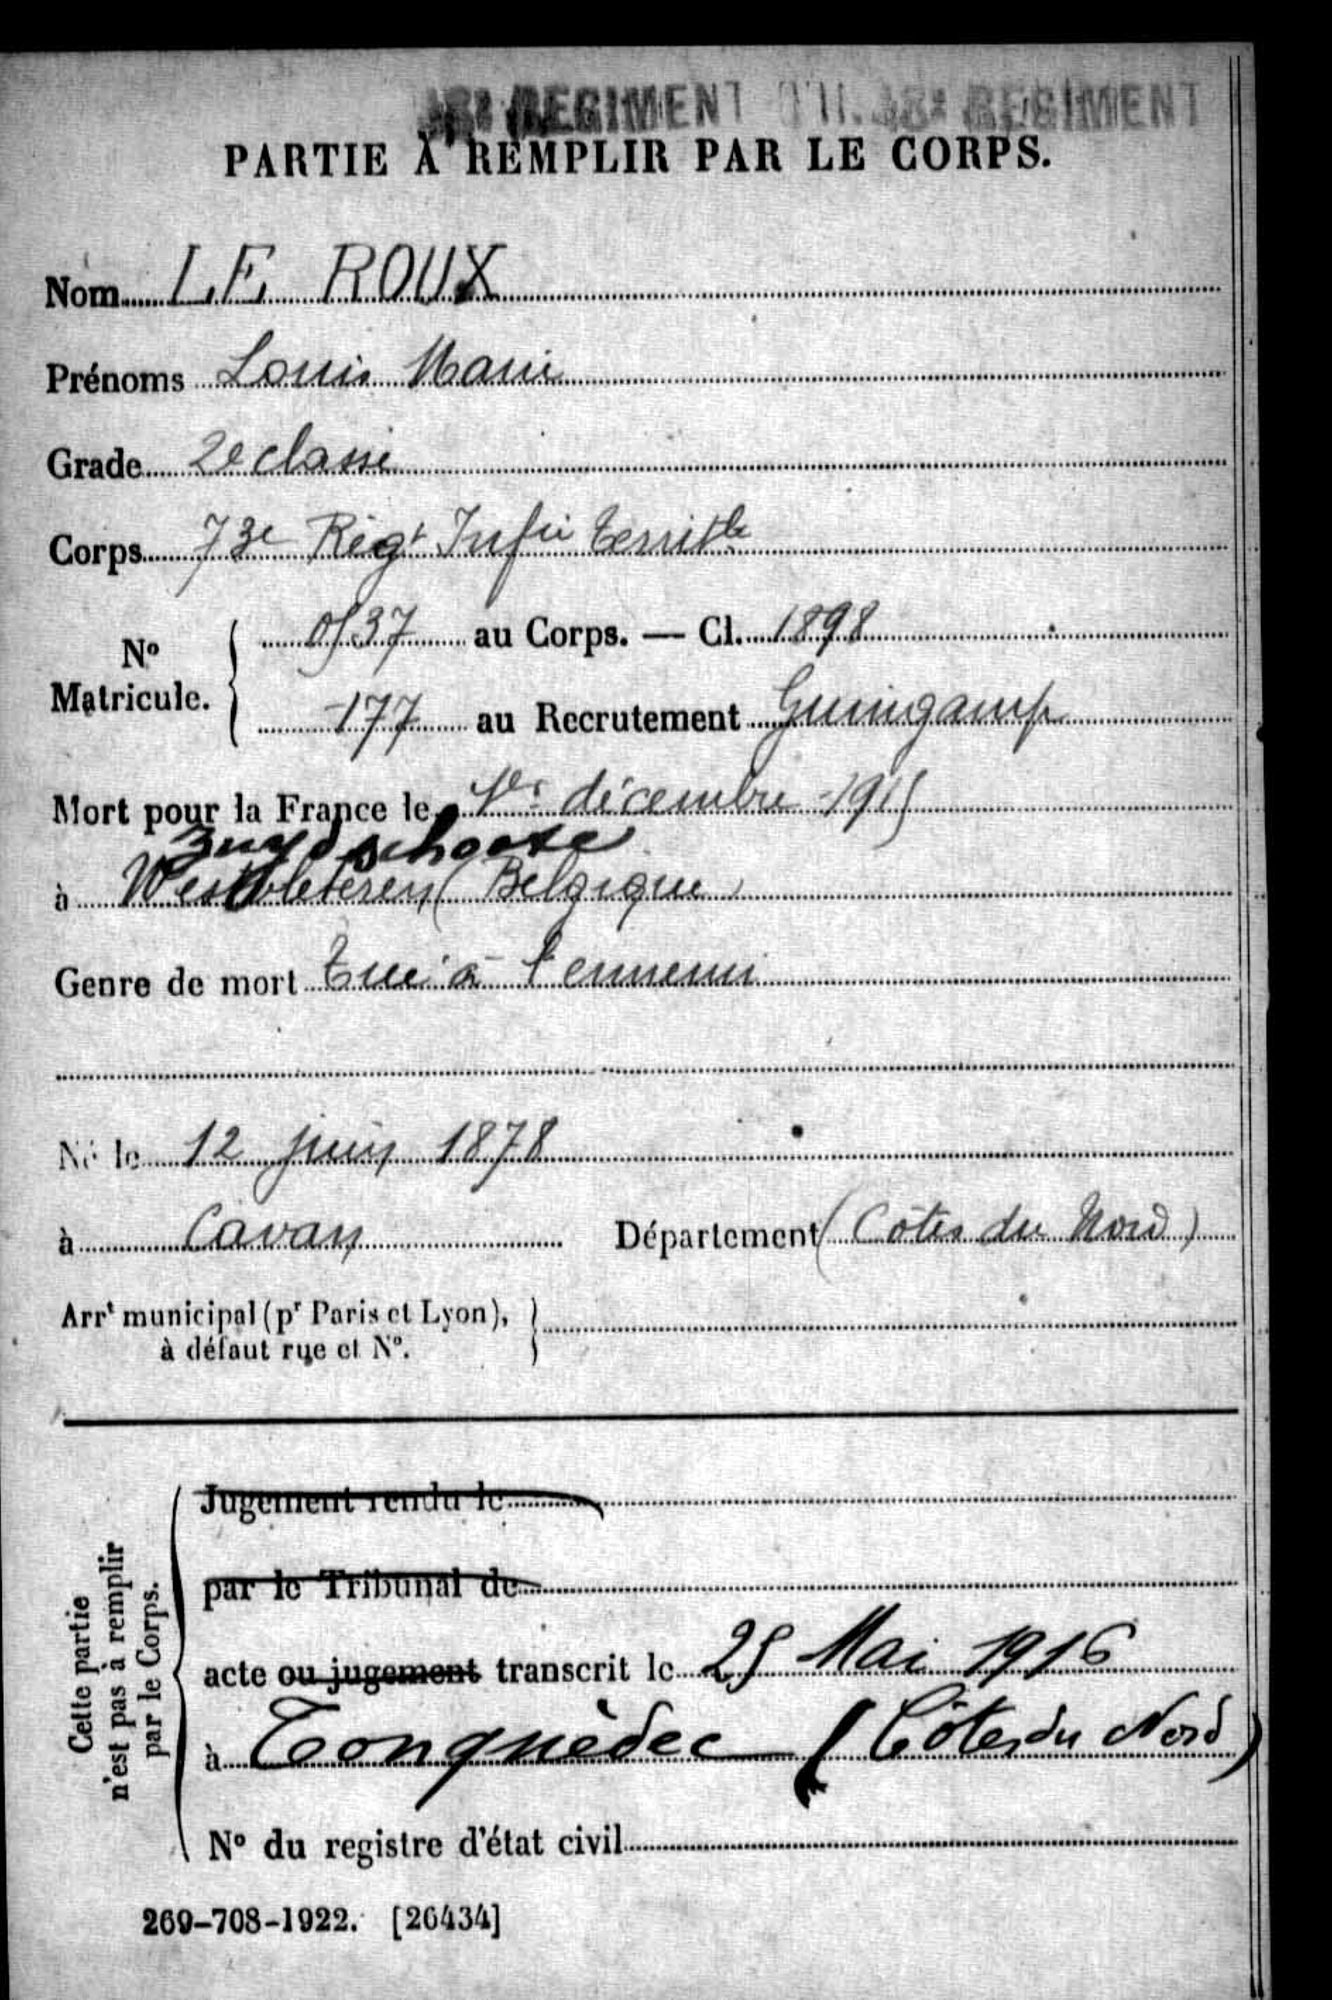 REGIMENT REGIMENT
PARTIE À REMPLIR PAR LE CORPS.
Nom LE ROUX
Prénoms Louis Marie
Grade 2e classe
Corps 73e Régt Infie Territle
No Matricule. 0537 au Corps. — Cl. 1898
177 au Recrutement Guingamp
Mort pour la France le 1er décembre 1915
Zuydschoote
à Westvleteren (Belgique)
Genre de mort Tué à l'ennemi
Né le 12 juin 1878
à Cavan Département (Côtes du Nord)
Arrt municipal (pr Paris et Lyon),
à défaut rue et No.
Cette partie
n'est pas à remplir
par le Corps.
Jugement rendu le
par le Tribunal de
acte ou jugement transcrit le 25 Mai 1916
à Tonquédec (Côtes du Nord)
No du registre d'état civil
269-708-1922. [26434]